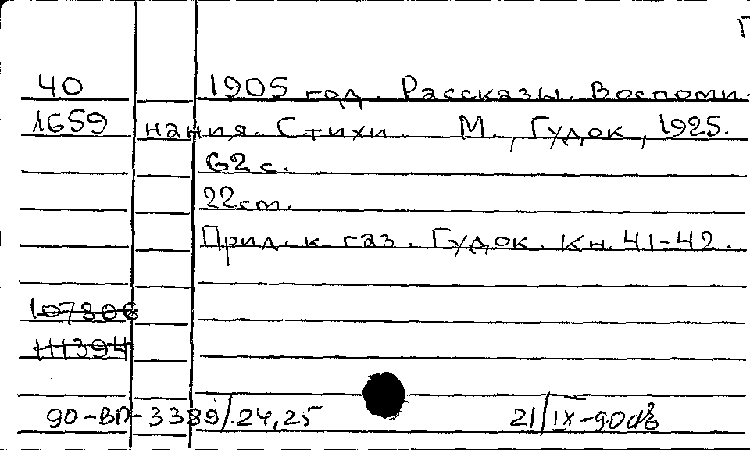 40 1905 год. Рассказы. Воспоми-
1659 нания. Стихи. М., Гудок, 1925.
62 с.
22 см.
Прил. к газ. Гудок. Кн. 41-42.
107806
111394
90-ВП-3389/.24,25 21/IX-90